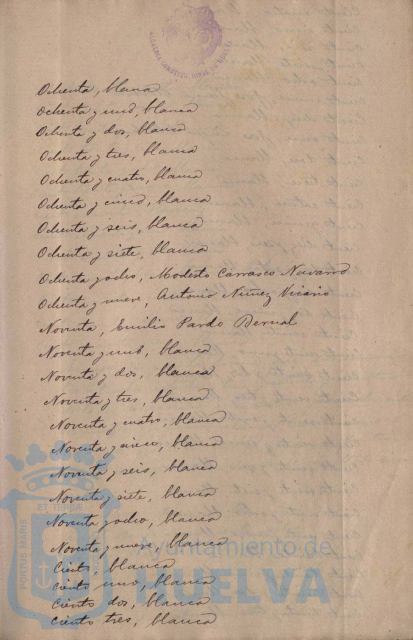 Ochenta, blanca
Ochenta y uno, blanca
Ochenta y dos, blanca
Ochenta y tres, blanca
Ochenta y cuatro, blanca
Ochenta y cinco, blanca
Ochenta y seis, blanca
Ochenta y siete, blanca
Ochenta y ocho, Modesto Carrasco Navarro
Ochenta y nueve, Antonio Nuñez Vicario
Noventa, Emilio Pardo Bernal
Noventa y uno, blanca
Noventa y dos, blanca
Noventa y tres, blanca
Noventa y cuatro, blanca
Noventa y cinco, blanca
Noventa y seis, blanca
Noventa y siete, blanca
Noventa y ocho, blanca
Noventa y nueve, blanca
Ciento, blanca
Ciento uno, blanca
Ciento dos, blanca
Ciento tres, blanca
PORTUS MARIS
Ayuntamiento de
HUELVA